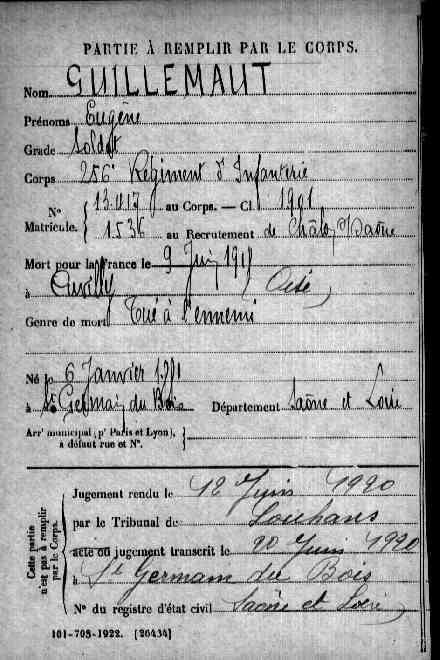 PARTIE À REMPLIR PAR LE CORPS.
Nom GUILLEMAUT
Prénoms Eugène
Grade Soldat
Corps 256e Régiment d'Infanterie
N° Matricule. { 13.417 au Corps. — Cl. 1901
1536 au Recrutement de Châlon s/Saône
Mort pour la France le 9 Juin 1918
à Cuvilly (Oise)
Genre de mort Tué à l'ennemi
Né le 6 Janvier 1881
à St Germain du Bois Département Saône et Loire
Arrt municipal (pr Paris et Lyon), à défaut rue et N°. {
Cette partie n'est pas à remplir par le Corps.
Jugement rendu le 12 Juin 1920
par le Tribunal de Louhans
acte ou jugement transcrit le 20 Juin 1920
à St Germain du Bois
N° du registre d'état civil Saône et Loire
101-708-1922. [26434]